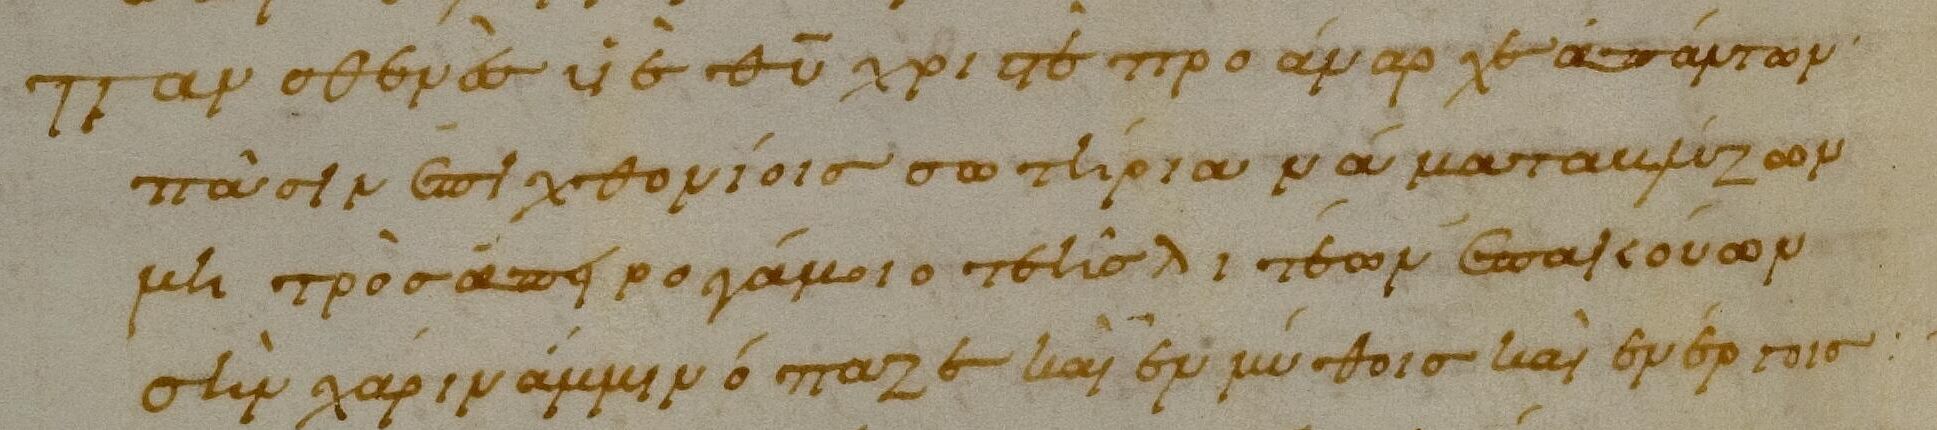 Πανσθενὲς υἱὲ θῡ χριστὲ προάναρχε ἁπάντων·
πᾶσιν ἐπιχθονίοις σωτήρια νάματα βλύζων
μητρὸς ἀπειρογάμοιο τεῆς λιτέων ἐπακούων
σὴν χάριν ἄμμιν ὄπαζε καὶ ἐν μύθοις καὶ ἐν ἔργοις: